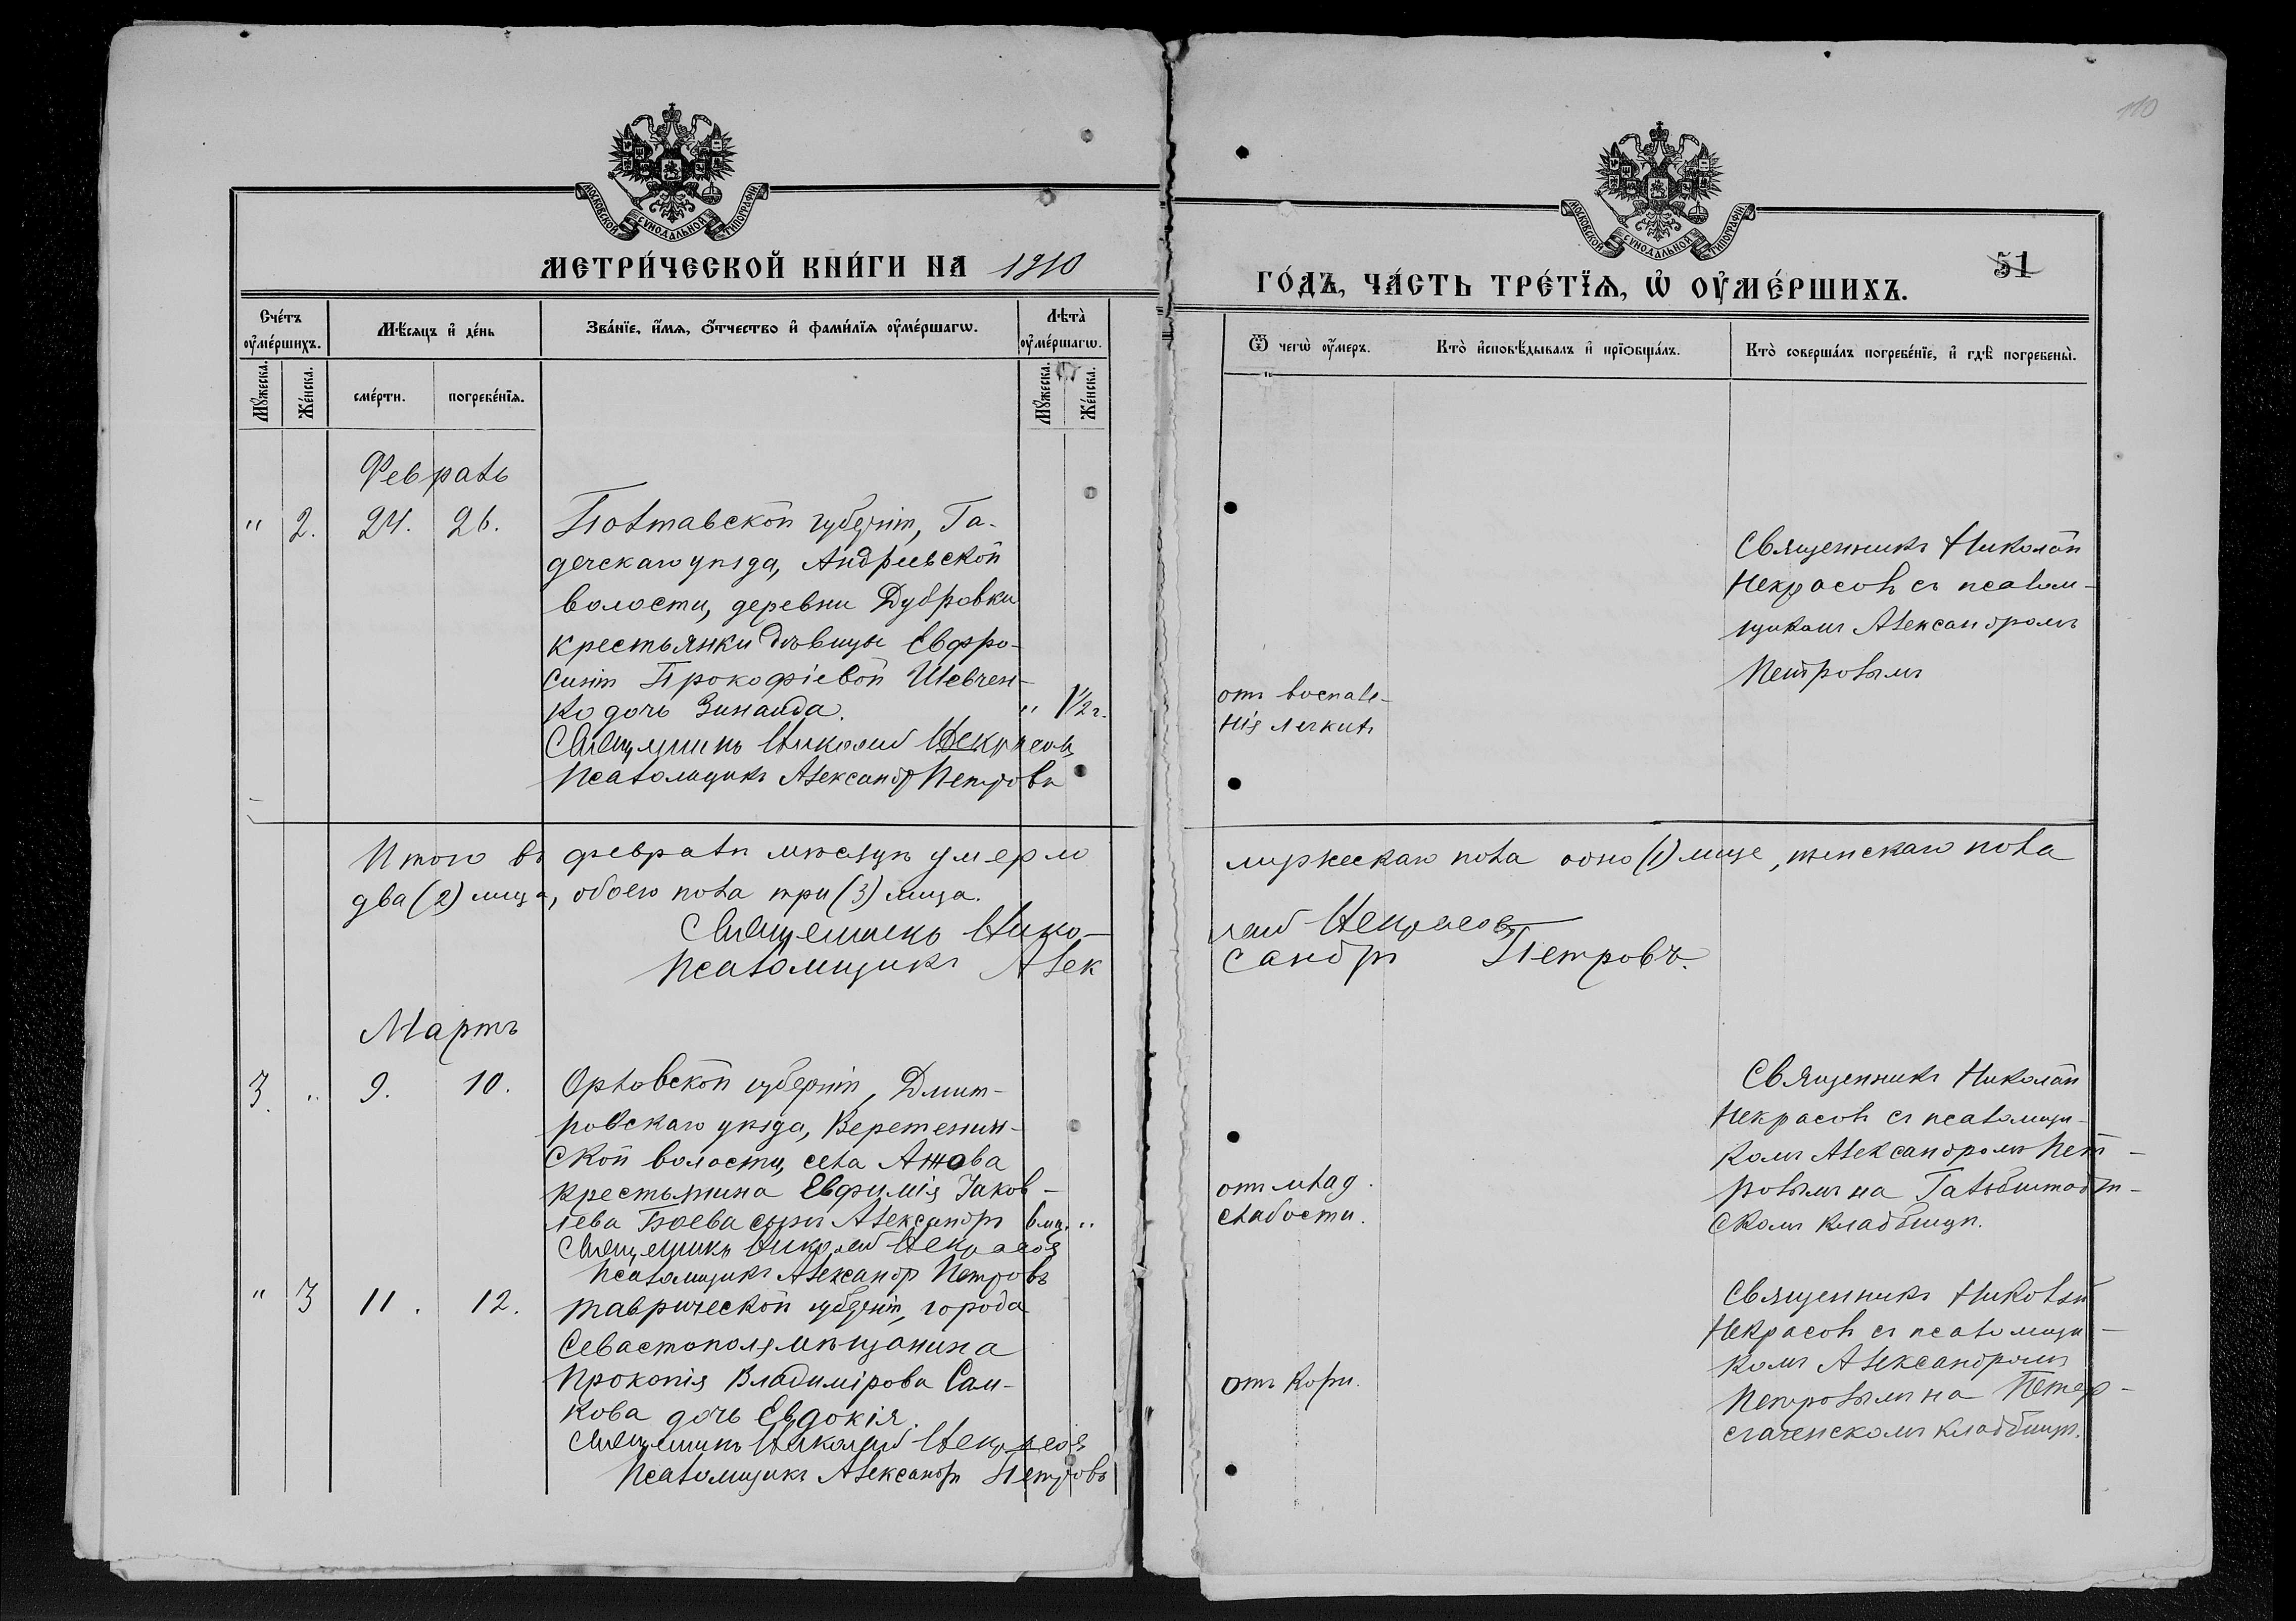 110
МОСКОВСКОЙ СѴНОДАЛЬНОЙ ТИПОГРАФІИ
МОСКОВСКОЙ СѴНОДАЛЬНОЙ ТИПОГРАФІИ
МЕТРИ́ЧЕСКОЙ КНИ́ГИ НА 1910
ГО́ДЪ, ЧА́СТЬ ТРЕ́ТЇѦ, Ѡ҆ ОУ҆МЕ́РШИХЪ.
51
Сче́тъ оу҆ме́ршихъ.
Мѣ́сяцъ и҆ де́нь
Зва́нїе, и҆́мя, ѻ҆́тчество и҆ фами́лїя оу҆ме́ршагѡ.
Лѣта̀ оу҆ме́ршагѡ.
Ѿ чегѡ̀ оу҆́меръ.
Кто̀ и҆сповѣ́дывалъ и҆ прїѻбща́лъ.
Кто̀ соверша́лъ погребе́нїе, и҆ гдѣ̀ погребены̀.
Мꙋ́жеска.
Же́нска.
сме́рти.
погребе́нїя.
Мꙋ́жеска.
Же́нска.
Февраль
" 2. 24. 26. Полтавской губерніи, Га-
дячскаго уѣзда, Андреевской
волости, деревни Дубровки
крестьянки дѣвицы Евфро-
синіи Прокофіевой Шевчен-
ко дочь Зинаида. " 1½ г.
Священникъ Николай Некрасовъ
Псаломщикъ Александр Петровъ
отъ воспале-
нія легкихъ
Священникъ Николай
Некрасовъ съ псалом-
щикомъ Александромъ
Петровымъ
Итого въ февралѣ мѣсяцѣ умерло мужескаго пола одно (1) лице, женскаго пола
два (2) лица, обоего пола три (3) лица.
Священникъ Николай Некрасовъ
Псаломщикъ Александръ Петровъ.
Мартъ
3. " 9. 10. Орловской губерніи, Дмит-
ровскаго уѣзда, Веретенин-
ской волости, села Ажова
крестьянина Евфимія Іаков-
лева Боева сынъ Александръ 6 мц. "
Священникъ Николай Некрасовъ
Псаломщикъ Александр Петровъ
отъ млад.
слабости.
Священникъ Николай
Некрасовъ съ псаломщи-
комъ Александромъ Пет-
ровымъ на
скомъ кладбищѣ.
" 3 11. 12. Таврической губерніи, города
Севастополя мѣщанина
Прокопія Владимірова Сам-
кова дочь Евдокія.
Священникъ Николай Некрасовъ
Псаломщикъ Александръ Петровъ
отъ кори.
Священникъ Николай
Некрасовъ съ псаломщи-
комъ Александромъ
Петровымъ на
кладбищѣ.